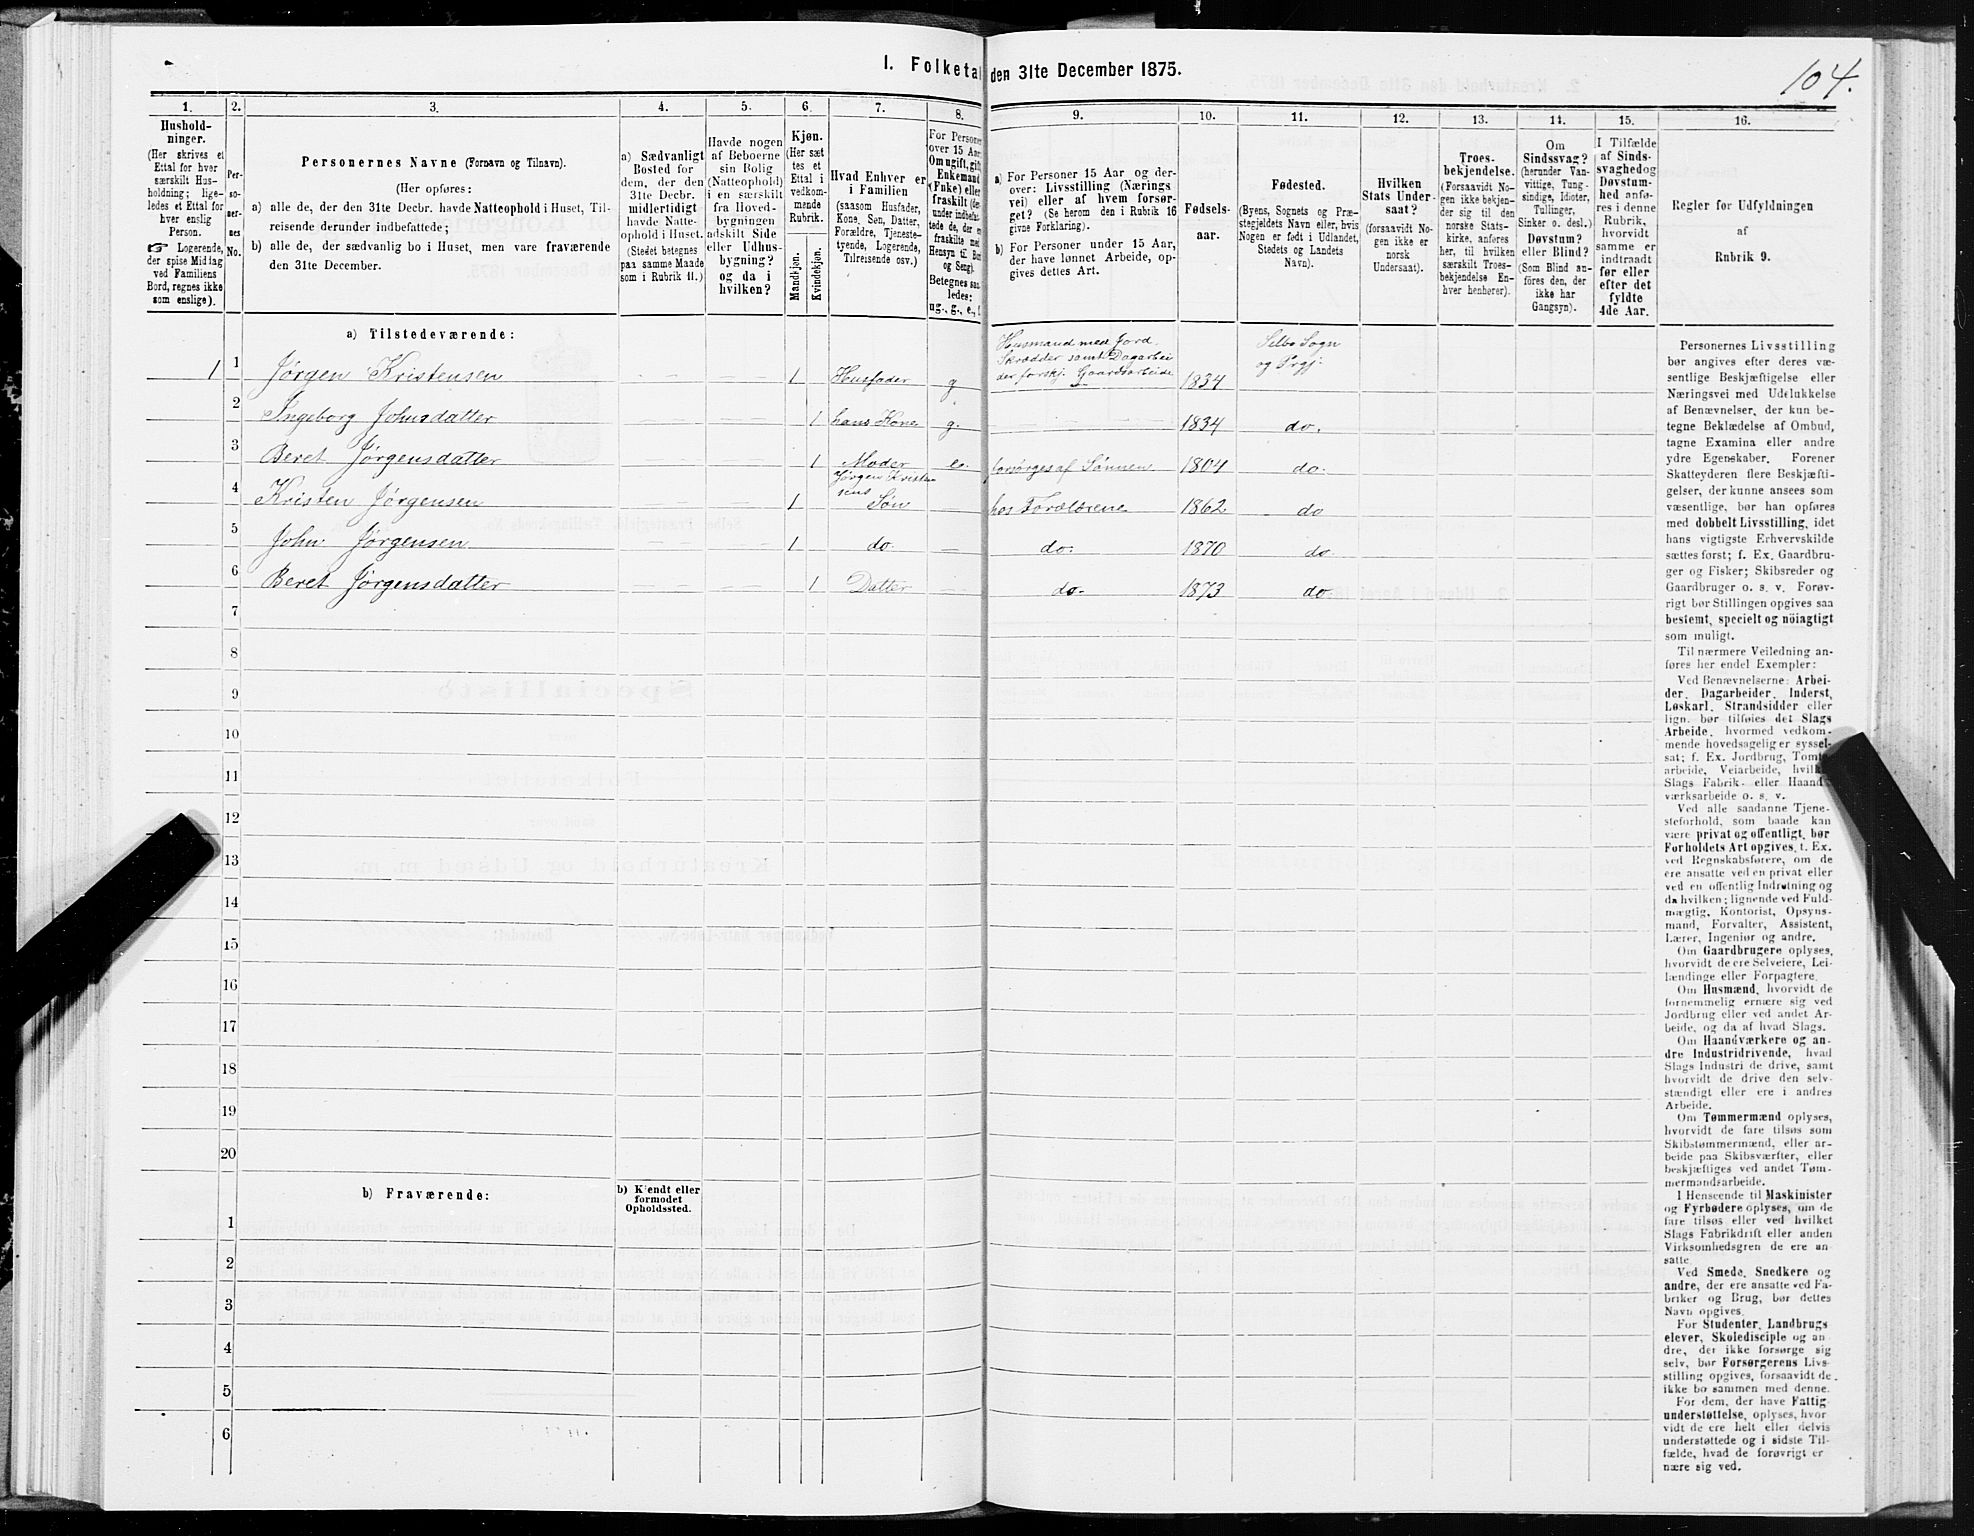 1. Folketal den 31te December 1875.
104.
1.
Hushold-
ninger.
(Her skrives et
Ettal for hver
særskilt Hus-
holdning; lige-
ledes et Ettal for
hver enslig
Person.
☞ Logerende,
der spise Middag
ved Familiens
Bord, regnes ikke
som enslige).
2.
Per-
so-
ner-
nes
No.
3.
Personernes Navne (Fornavn og Tilnavn).
(Her opføres:
a) alle de, der den 31te Decbr. havde Natteophold i Huset, Til-
reisende derunder indbefattede;
b) alle de, der sædvanlig bo i Huset, men vare fraværende
den 31te December.
4.
a) Sædvanligt
Bosted for
dem, der den
31te Decbr.
midlertidigt
havde Natte-
ophold i Huset.
(Stedet betegnes
paa samme Maade
som i Rubrik 11.)
5.
Havde nogen
af Beboerne
sin Bolig
(Natteophold)
i en særskilt
fra Hoved-
bygningen
adskilt Side
eller Udhus-
bygning?
og da i
hvilken?
6.
Kjøn.
(Her sæt
tes et
Ettal i
vedkom-
mende
Rubrik.
Mandkjøn.
Kvindekjøn.
7.
Hvad Enhver er
i Familien
(saasom Husfader,
Kone, Søn, Datter,
Forældre, Tjeneste-
tyende, Logerende,
Tilreisende osv.)
8.
For Personer
over 15 Aar:
Om ugift, gift,
Enkemand
(Enke) eller
fraskilt (der-
under indbefat-
tede de, der er
fraskilte med
Hensyn til Bord
og Seng).
Betegnes saa-
ledes:
ug., g., e., f.
9.
a) For Personer 15 Aar og der-
over: Livsstilling (Nærings
vei) eller af hvem forsør-
get? (Se herom den i Rubrik 16
givne Forklaring).
b) For Personer under 15 Aar,
der have lønnet Arbeide, op-
gives dettes Art.
10.
Fødsels-
aar.
11.
Fødested.
(Byens, Sognets og Præ-
stegjeldets Navn eller, hvis
Nogen er født i Udlandet,
Stedets og Landets
Navn).
12.
Hvilken
Stats Under-
saat?
(forsaavidt No-
gen ikke er
norsk
Undersaat).
13.
Troes-
bekjendelse.
(Forsaavidt No-
gen ikke bekjen-
der sig til den
norske Stats-
kirke, anføres
her, til hvilken
særskilt Troes-
bekjendelse En-
hver henhører).
14.
Om
Sindssvag?
(herunder Van-
vittige, Tung-
sindige, Idioter,
Tullinger,
Sinker o. desl.)
Døvstum?
eller Blind?
(Som Blind an-
føres den, der
ikke har
Gangsyn).
15.
I Tilfælde
af Sinds-
svaghed og
Døvstum-
hed anfø-
res i denne
Rubrik,
hvorvidt
samme er
indtraadt
før eller
efter det
fyldte
4de Aar.
16.
Regler for Udfyldningen
af
Rubrik 9.
a) Tilstedeværende:
1 1 Jørgen Kristensen 1 Husfader g Husmand med Jord. Skrædder samt Dagarbei der forskj. Gaardsarbeide 1834 Selbo Sogn og Prgj.
2 Ingeborg Johnsdatter 1 hans Kone g. 1834 do.
3 Beret Jørgensdatter 1 Moder e. forsørges af Sønnen 1804 do.
4 Kristen Jørgensen 1 Jørgen Kristensens Søn hos Forældrene 1862 do
5 John Jørgensen 1 do. do. 1870 do.
6 Beret Jørgensdatter 1 Datter do. 1873 do.
7
8
9
10
11
12
13
14
15
16
17
18
19
20
b) Fraværende:
b) Kjendt eller
formodet
Opholdssted.
1
2
3
4
5
6
Personernes Livsstilling
bør angives efter deres væ-
sentlige Beskjæftigelse eller
Næringsvei med Udelukkelse
af Benævnelser, der kun be-
tegne Beklædelse af Ombud,
tagne Examina eller andre
ydre Egenskaber. Forener
Skatteyderen flere Beskjæfti-
gelser, der kunne ansees som
væsentlige, bør han opføres
med dobbelt Livsstilling, idet
hans vigtigste Erhvervskilde
sættes først; f. Ex. Gaardbru-
ger og Fisker; Skibsreder og
Gaardbruger o. s. v. Forøv-
rigt bør Stillingen opgives saa
bestemt, specielt og nöiagtigt
som muligt.
Til nærmere Veiledning an-
føres her endel Exempler:
Ved Benævnelserne: Arbei-
der, Dagarbeider, Inderst,
Løskarl, Strandsidder eller
lign. bør tilføies det Slags
Arbeide, hvormed vedkom-
mende hovedsagelig er syssel-
sat; f. Ex. Jordbrug, Tomte-
arbeide, Veiarbeide, hvilket
Slags Fabrik- eller Haand-
værksarbeide o. s. v.
Ved alle saadanne Tjene-
steforhold, som baade kan
være privat og offentligt, bør
Forholdets Art opgives, f. Ex.
ved Regnskabsførere, om de
ere ansatte ved en privat eller
ved en offentlig Indretning og
da hvilken; lignende ved Fuld-
mægtig, Kontorist, Opsyns-
mand, Forvalter, Assistent,
Lærer, Ingeniør og andre.
Om Gaardbrugere oplyses,
hvorvidt de ere Selveiere, Lei-
lændinge eller Forpagtere.
Om Husmænd, hvorvidt de
fornemmelig ernære sig ved
Jordbrug eller ved andet Ar-
beide, og da af hvad Slags.
Om Haandværkere og an-
dre Industridrivende, hvad
Slags Industri de drive, samt
hvorvidt de drive den selv-
stændigt eller ere i andres
Arbeide.
Om Tømmermænd oplyses,
hvorvidt de fare tilsøs som
Skibstømmermænd, eller ar-
beide paa Skibsværfter, eller
beskjæftiges ved andet Tøm-
mermandsarbeide.
I Henseende til Maskinister
og Fyrbødere oplyses, om de
fare tilsøs eller ved hvilket
Slags Fabrikdrift eller anden
Virksomhedsgren de ere an-
satte.
Ved Smede, Snedkere og
andre, der ere ansatte ved Fa-
briker og Brug, bør dettes
Navn opgives.
For Studenter, Landbrugs
elever, Skoledisciple og an
dre, der ikke forsørge sig
selv, bør Forsørgerens Livs-
stilling opgives, forsaavidt de
ikke bo sammen med denne.
For dem, der have Fattig
understøttelse, oplyses, hvor
vidt de ere helt eller delvis
understøttede og i sidste Til-
fælde, hvad de forøvrigt er
nære sig ved.